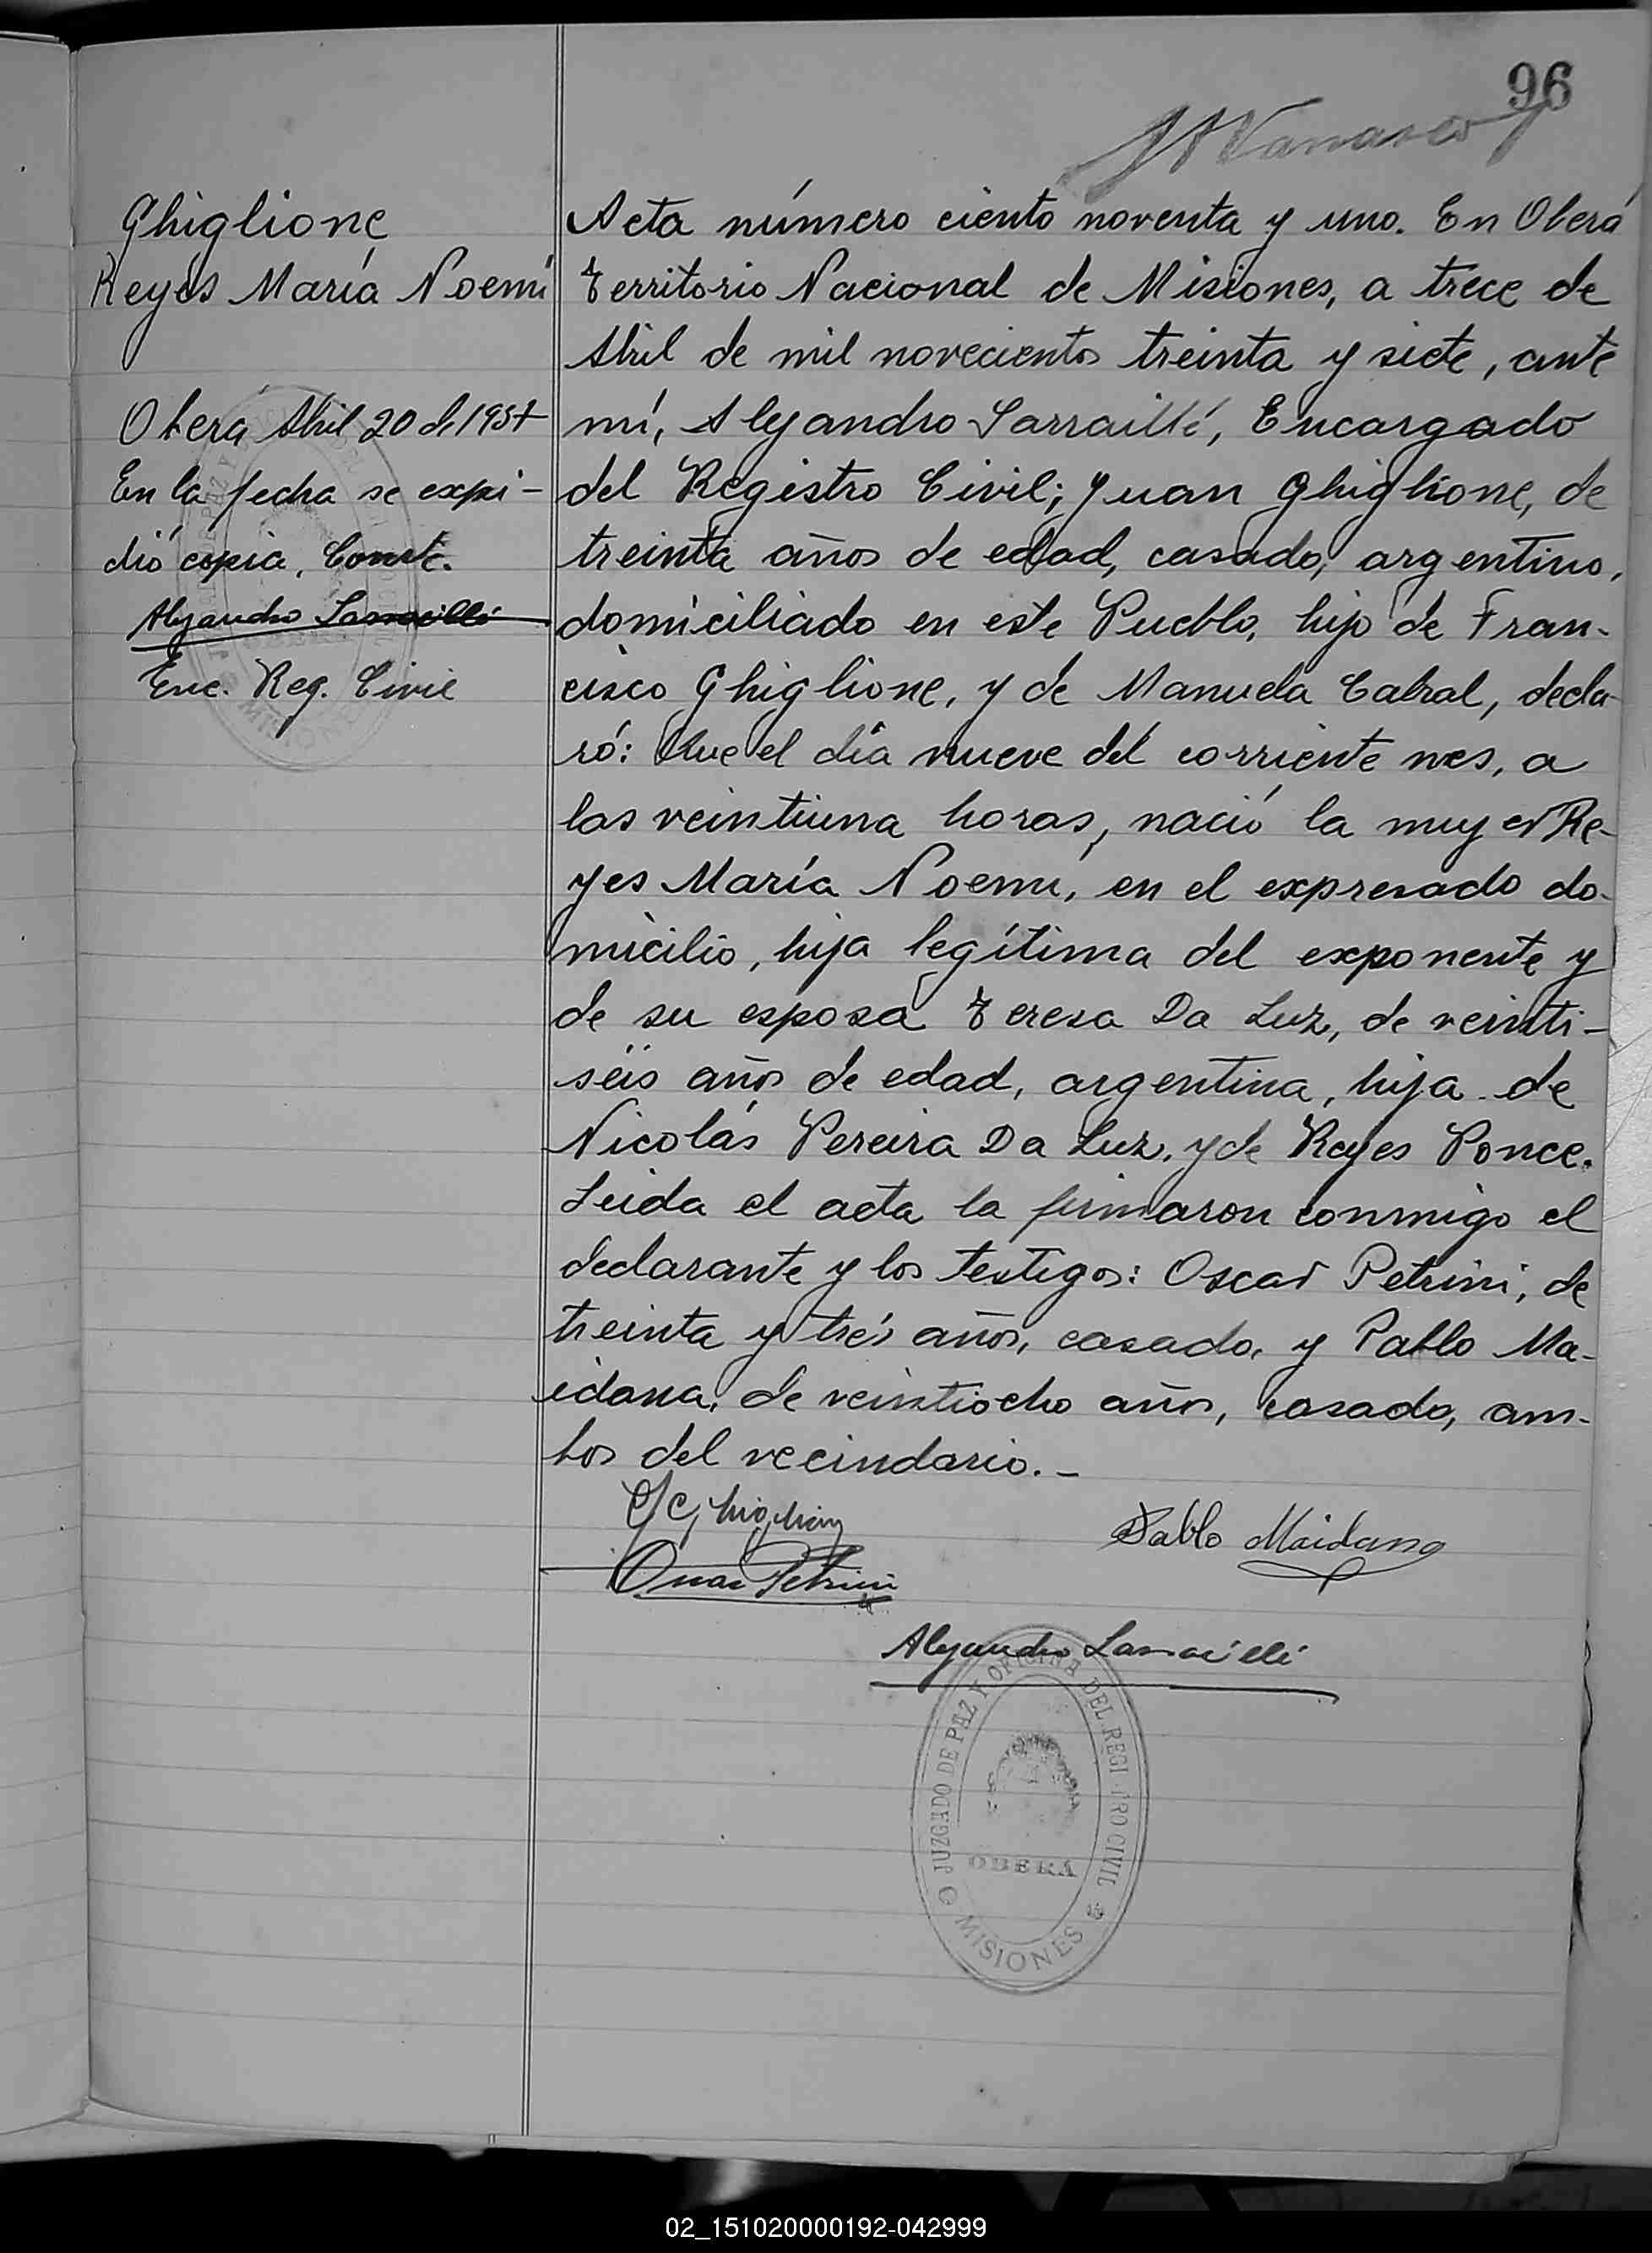 96
Ghiglione
Reyes María Noemí
Obera Abril 20 de 1937
En la fecha se expi-
dió copia. Conste.
Alejandro Sarraillé
Enc. Reg. Civil
Acta número ciento noventa y uno. En Oberá
Territorio Nacional de Misiones, a trece de
Abril de mil novecientos treinta y siete, ante
mí, Alejandro Sarraillé, Encargado
del Registro Civil; Juan Ghiglione, de
treinta años de edad, casado, argentino,
domiciliado en este Pueblo, hijo de Fran-
cisco Ghiglione, y de Manuela Cabral, decla-
ró: Que el día nueve del corriente mes, a
las veintiuna horas, nació la mujer Re-
yes María Noemí, en el expresado do-
micilio, hija legítima del exponente y
de su esposa Teresa Da Luz, de veinti-
séis años de edad, argentina, hija de
Nicolás Pereira Da Luz, y de Reyes Ponce.
Leida el acta la firmaron conmigo el
declarante y los testigos: Oscar Petrini, de
treinta y trés años, casado, y Pablo Ma-
idana, de veintiocho años, casado, am-
bos del vecindario.-
Pablo Maidana
Oscar Petrini
Alejandro Sarraillé
JUZGADO DE PAZ Y OFICINA DEL REGISTRO CIVIL
OBERÁ
MISIONES
02_151020000192-042999